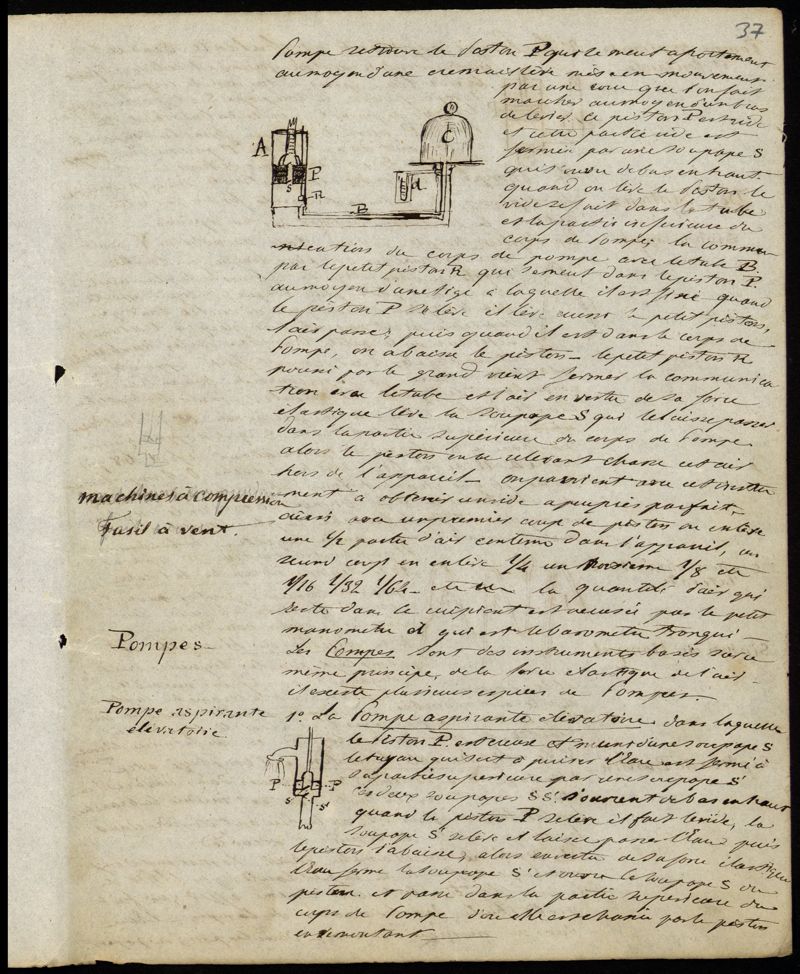 37
Pompe se trouve le piston P qui se meut
au moyen d'une cremaillère mise en mouvement
par une roue que l'on fait
marcher au moyen d'un bras
de levier. Ce piston P est vide
et cette partie vide est
fermée par une soupape S
qui s'ouvre de bas en haut
quand on lève le piston le
vide se fait dans le tube
et la partie inferieure du
corps de pompe; la commu
nication du corps de pompe avec le tube B
par le petit piston R qui se meut dans le piston P
au moyen d'une tige à laquelle il est fixé quand
le piston P se lève il lève aussi le petit piston,
l'air passe, puis quand il est dans le corps de
Pompe, on abaisse le piston - le petit piston R
poussé par le grand vient fermer la communica
tion avec le tube et l'air en vertu de sa force
élastique lève la soupape S qui le laisse passer
dans la partie supérieure du corps de Pompe
alors le piston en se relevant chasse cet air
hors de l'appareil - on parvient avec cet instru
ment à obtenir un vide à peu près parfait
ainsi avec un premier coup de piston on enlève
une 1/2 partie d'air contenu dans l'appareil, un
second coup en enlève 1/4 un troisieme 1/8 etc
1/16 1/32 1/64 - etc la quantité d'air qui
reste dans le récipient est accusée par le petit
manometre d qui est le barometre tronqué -
Les Pompes sont des instruments basés sur le
même principe, de la force élastique de l'air
il existe plusieurs espèces de Pompes.
1º La Pompe aspirante élévatoire dans laquelle
le Piston P. est creuse et muni d'une soupape S
le tuyau qui sert à puiser l'eau est fermé à
sa partie supérieure par une soupape S'
Ces deux soupapes S S' s'ouvrent de bas en haut
quand le piston P se lève il fait le vide, la
soupape S' se lève et laisse passer l'eau puis
le piston s'abaisse, alors en vertu de sa force élastique
l'eau ferme la soupape S' et ouvre la soupape S du
piston et passe dans la partie superieure du
corps de Pompe d'où elle est chassée par le piston
en remontant
machines à compression
Fusil à vent.
Pompes
Pompe aspirante
elévatoire
A
P
S
R
B
C
d
P
P
S
S'